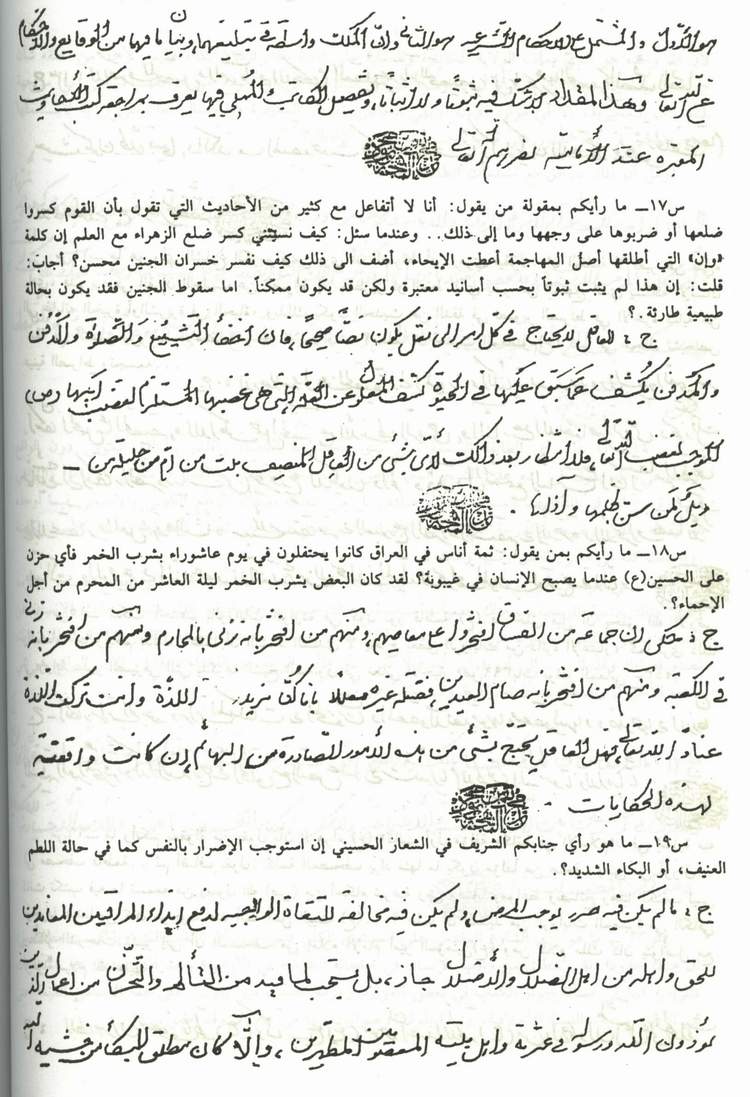 هو الأول والمشتمل على الأحكام الشرعية هو الثاني وأن الملك واسطة في تبليغهما، وبيان ما فيهما من الوقايع والأحكام
عن الله تعالى وهذا المقدار لا شك فيه ثبوتاً ولا إثباتاً، وتفصيل الكلام فيها يعرف بمراجعة كتب الأحاديث
المعتبرة عند الأمامية نصرهم الله تعالى
س١٧ــ ما رأيكم بمقولة من يقول: أنا لا أتفاعل مع كثير من الأحاديث التي تقول بأن القوم كسروا
ضلعها أو ضربوها على وجهها وما إلى ذلك.. وعندما سئل: كيف نستثني كسر ضلع الزهراء مع العلم إن كلمة
«وإن» التي أطلقها أصل المهاجمة أعطت الإيحاء، أضف الى ذلك كيف نفسر خسران الجنين محسن؟ أجاب:
قلت: إن هذا لم يثبت ثبوتاً بحسب أسانيد معتبرة ولكن قد يكون ممكناً. اما سقوط الجنين فقد يكون بحالة
طبيعية طارئة.؟
ج : العاقل لا يحتاج في كل امر الى نقل يكون نصاً صحيحاً، فان اخفاء التشييع والصلوة والدفن
والمدفن يكشف عما سبق عليها في الحيوة كشف المعلول عن العلة التي هي غضبها المستلزم لغضب ابيها (ص)
الموجب لغضب الله تعالى، فلا انتظار بعد ذلك لأي شيء من العاقل المنصف
من ظلمها وأذلها .
س١٨ــ ما رأيكم بمن يقول: ثمة أناس في العراق كانوا يحتفلون في يوم عاشوراء بشرب الخمر فأي حزن
على الحسين(ع) عندما يصبح الإنسان في غيبوبة؟ لقد كان البعض يشرب الخمر ليلة العاشر من المحرم من أجل
الإحماء؟.
ج : حكى ان جماعة من الفساق افتخروا على معاصيهم، ومنهم من افتخر بانه زنى بالمحارم ومنهم من افتخر بانه زنى
في الكعبة ومنهم من افتخر بانه صام العيدين، ففضله غيره معللاً بانا كنا نريد اللذة وانت تركت اللذة
عناد الله تعالى، فهل العاقل يحتج بشيء من هذه الأمور الصادرة من البهائم إن كانت واقعية
لهذه الحكايات .
س١٩ــ ما هو رأي جنابكم الشريف في الشعار الحسيني إن استوجب الإضرار بالنفس كما في حالة اللطم
العنيف، أو البكاء الشديد؟.
ج : ما لم يكن فيه ضرر يوجب المرض، ولم يكن فيه مخالفة للتقاة الواجبة لدفع إيذاء المراقبين المعاندين
للحق واهله من اهل الضلال والأضلال جاز، بل يستحب لما فيه من التألم والتحزن من اعمال الذين
يؤذون الله ورسوله في عترته واهل بيته المعصومين المطهرين، وإلا كان مطلق البكاء من خشية الله